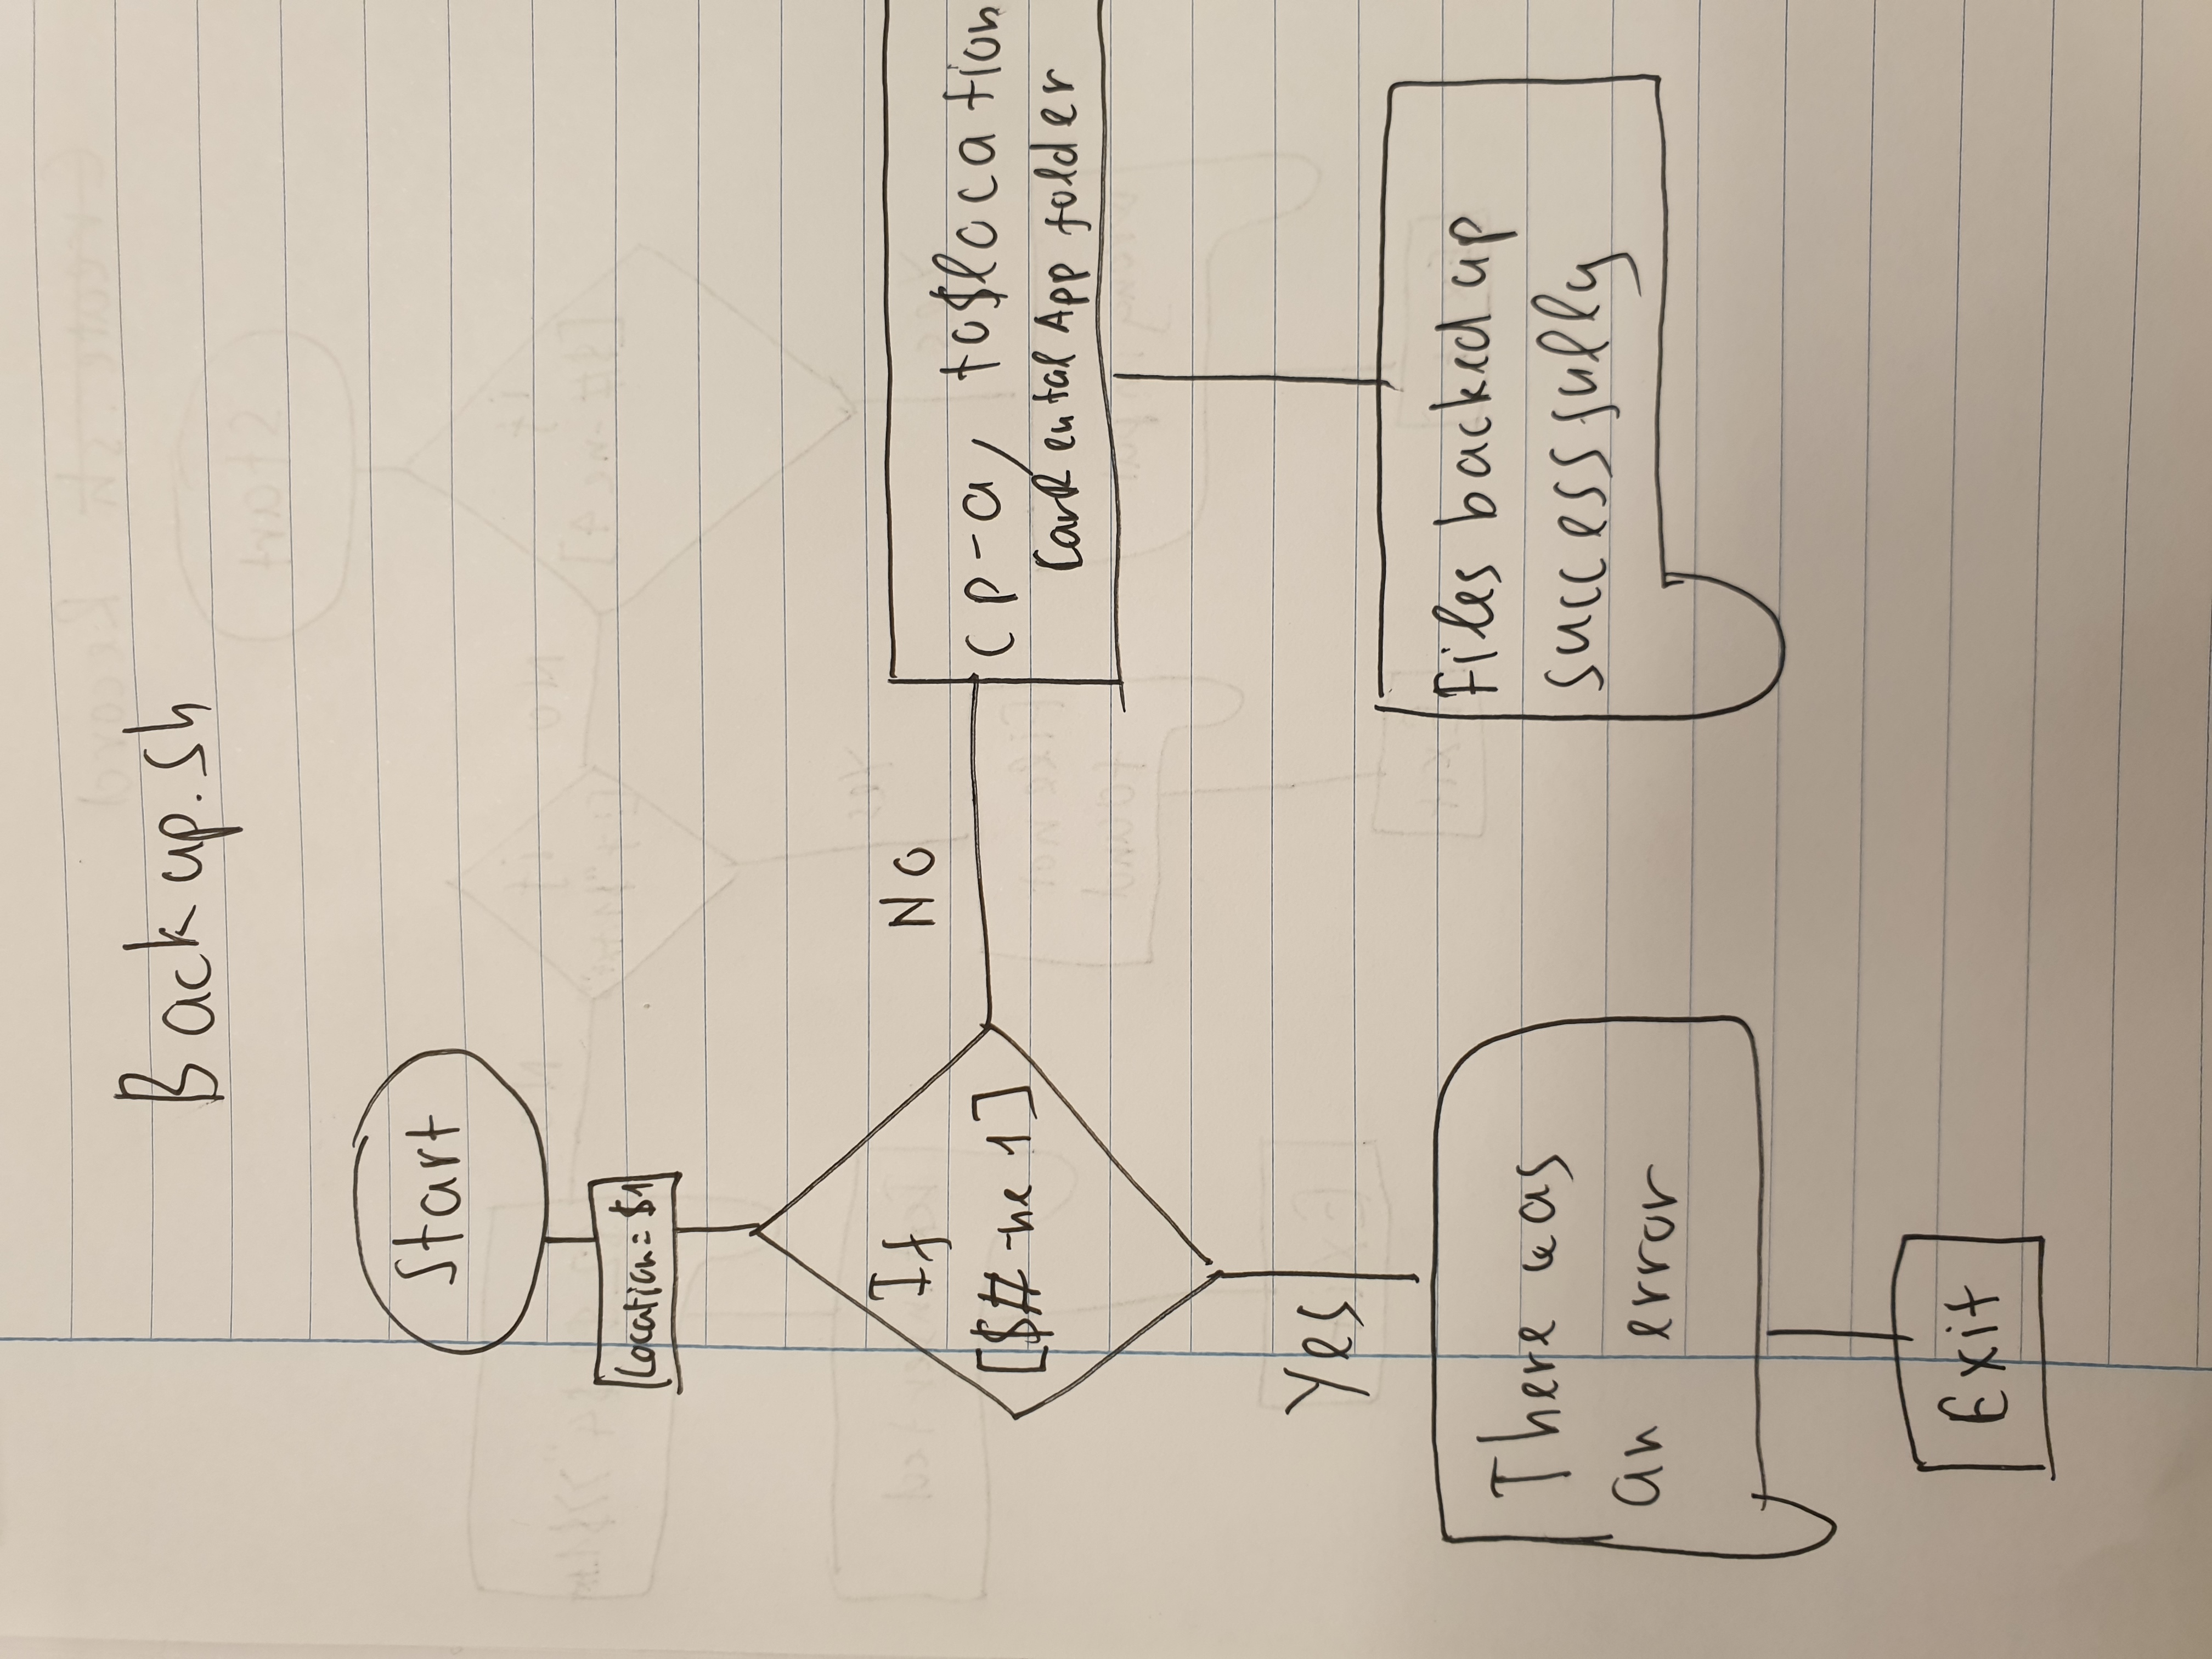 Backup.sh
Start
Location = $1
If
[$# -ne 1]
NO
cp -a, to $location
CarRental App folder
Yes
There was
an error
Files backed up
successfully
Exit